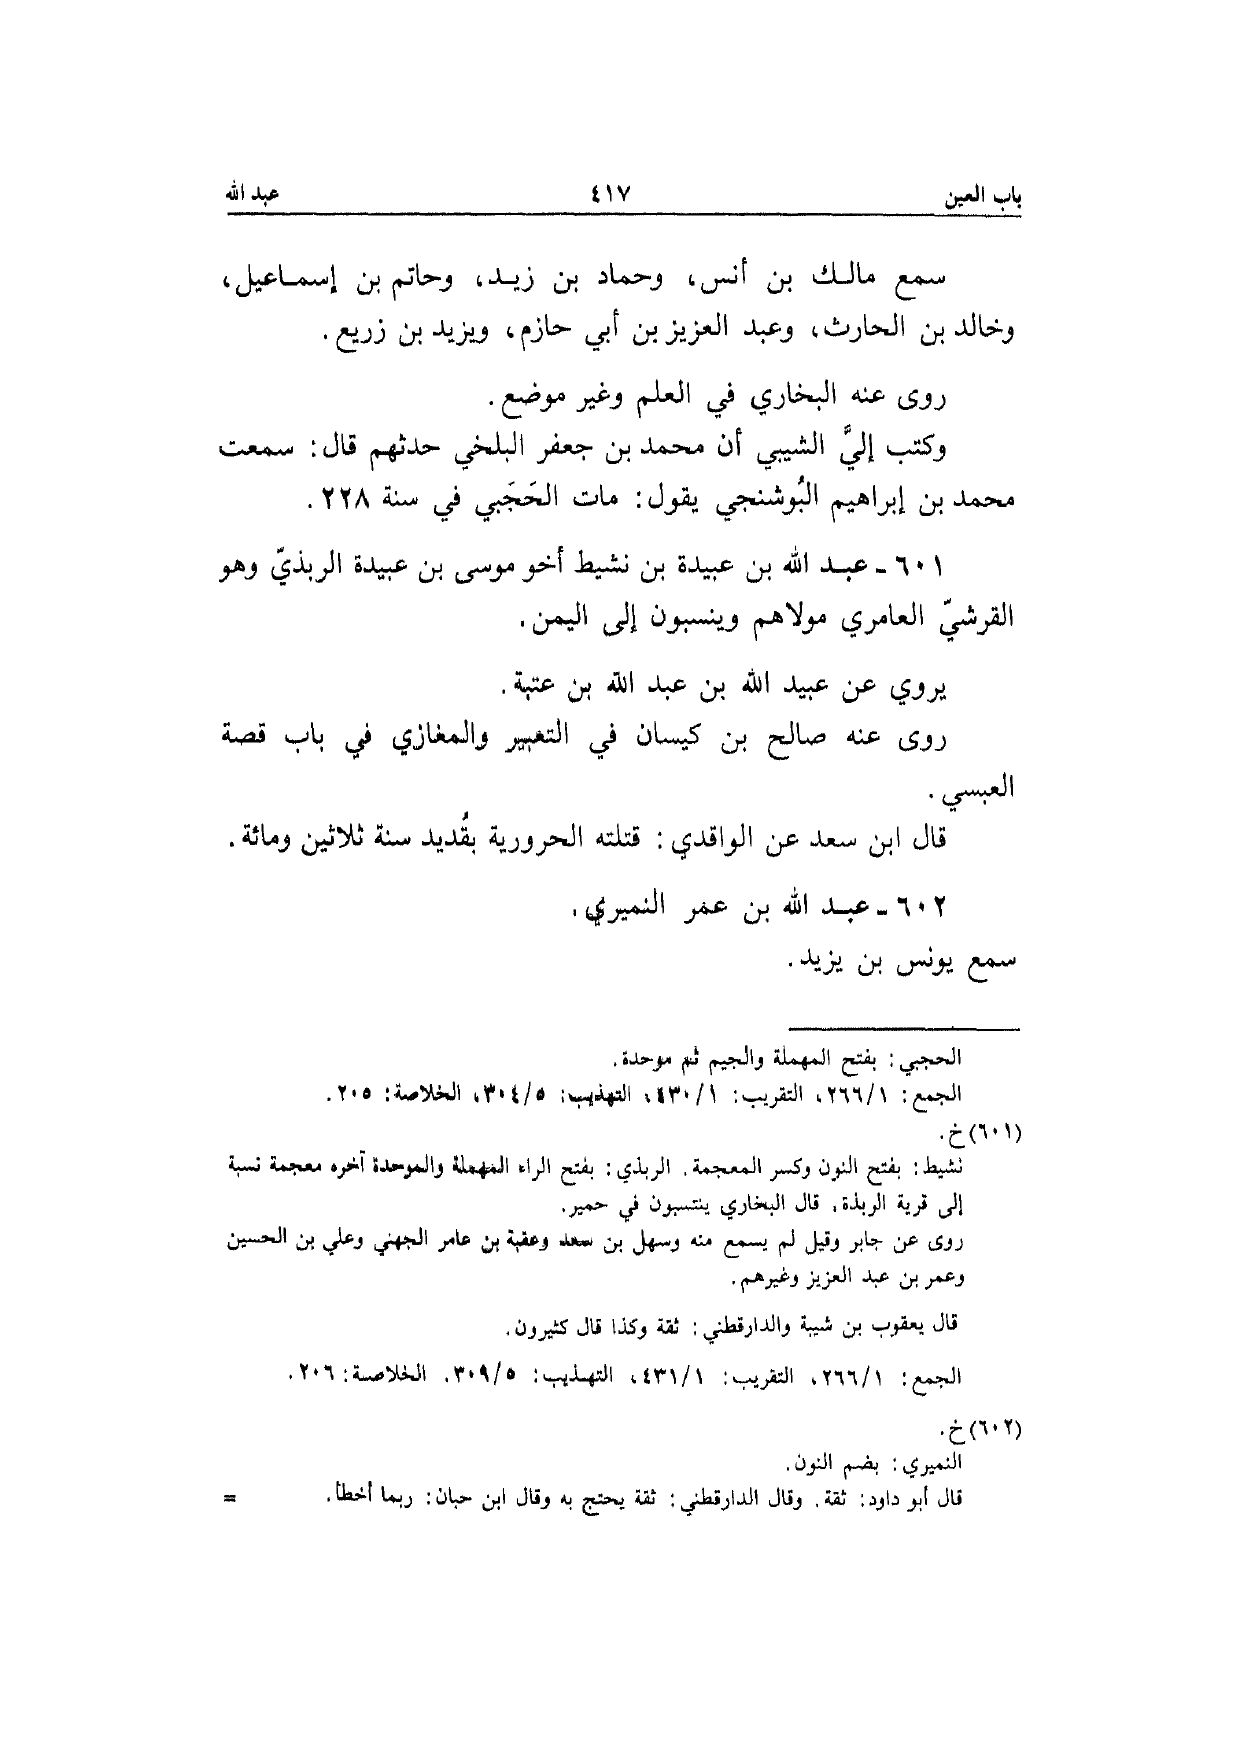 باب العين ٤١٧ عبد الله
سمع مالك بن أنس، وحماد بن زيد، وحاتم بن إسماعيل،
وخالد بن الحارث، وعبد العزيز بن أبي حازم، ويزيد بن زريع.
روى عنه البخاري في العلم وغير موضع.
وكتب إليَّ الشيبي أن محمد بن جعفر البلخي حدثهم قال: سمعت
محمد بن إبراهيم البُوشنجي يقول: مات الحَجَبي في سنة ٢٢٨.
٦٠١ - عبد الله بن عبيدة بن نشيط أخو موسى بن عبيدة الربذيّ وهو
القرشيّ العامري مولاهم وينسبون إلى اليمن.
يروي عن عبيد الله بن عبد الله بن عتبة.
روى عنه صالح بن كيسان في التعبير والمغازي في باب قصة
العبسي.
قال ابن سعد عن الواقدي: قتلته الحرورية بقُديد سنة ثلاثين ومائة.
٦٠٢ - عبد الله بن عمر النميري.
سمع يونس بن يزيد.
الحجبي: بفتح المهملة والجيم ثم موحدة.
الجمع: ٢٦٦/١، التقريب: ٤٣٠/١، التهذيب: ٣٠٤/٥، الخلاصة: ٢٠٥.
(٦٠١) خ.
نشيط: بفتح النون وكسر المعجمة. الربذي: بفتح الراء المهملة والموحدة آخره معجمة نسبة
إلى قرية الربذة. قال البخاري ينتسبون في حمير.
روى عن جابر وقيل لم يسمع منه وسهل بن سعد وعقبة بن عامر الجهني وعلي بن الحسين
وعمر بن عبد العزيز وغيرهم.
قال يعقوب بن شيبة والدارقطني: ثقة وكذا قال كثيرون.
الجمع: ٢٦٦/١، التقريب: ٤٣١/١، التهذيب: ٣٠٩/٥. الخلاصة: ٢٠٦.
(٦٠٢) خ.
النميري: بضم النون.
قال أبو داود: ثقة. وقال الدارقطني: ثقة يحتج به وقال ابن حبان: ربما أخطأ. =